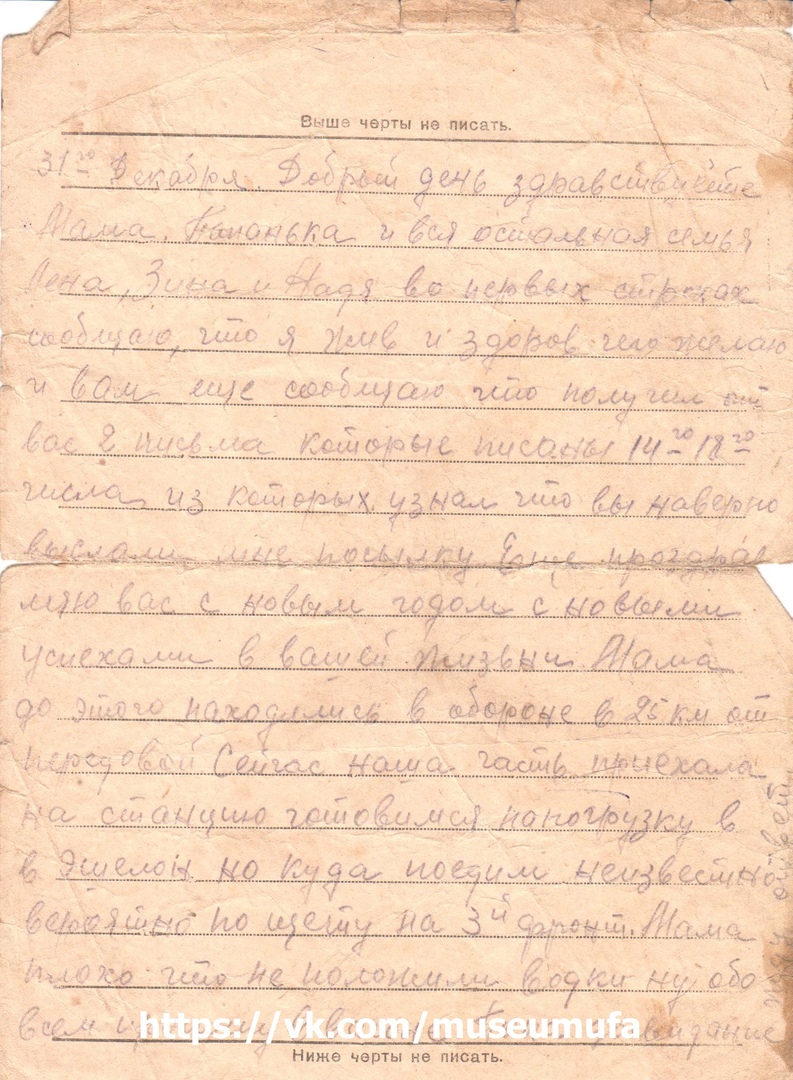 Выше черты не писать.
31го Декабря. Добрый день здравствуйте
Мама, и вся остальная семья
Лена, Зина и Надя во первых строках
сообщаю, что я жив и здоров чего желаю
и вам еще сообщаю что получил от
вас 2 письма которые писаны 14го 18го
числа из которых узнал что вы наверно
выслали мне посылку Еще проздрав
ляю вас с новым годом с новыми
успехами в вашей жизьни Мама
до этого находились в обороне в 25 км от
передовой Сейчас наша часть приехала
на станцию готовимся на погрузку в
в Эшелон но куда поедим неизвестно
вероятно по щету на 3й фронт. Мама
плохо что не положили водки ну обо
всем
жду ответ
https://vk.com/museumufa
Ниже черты не писать.